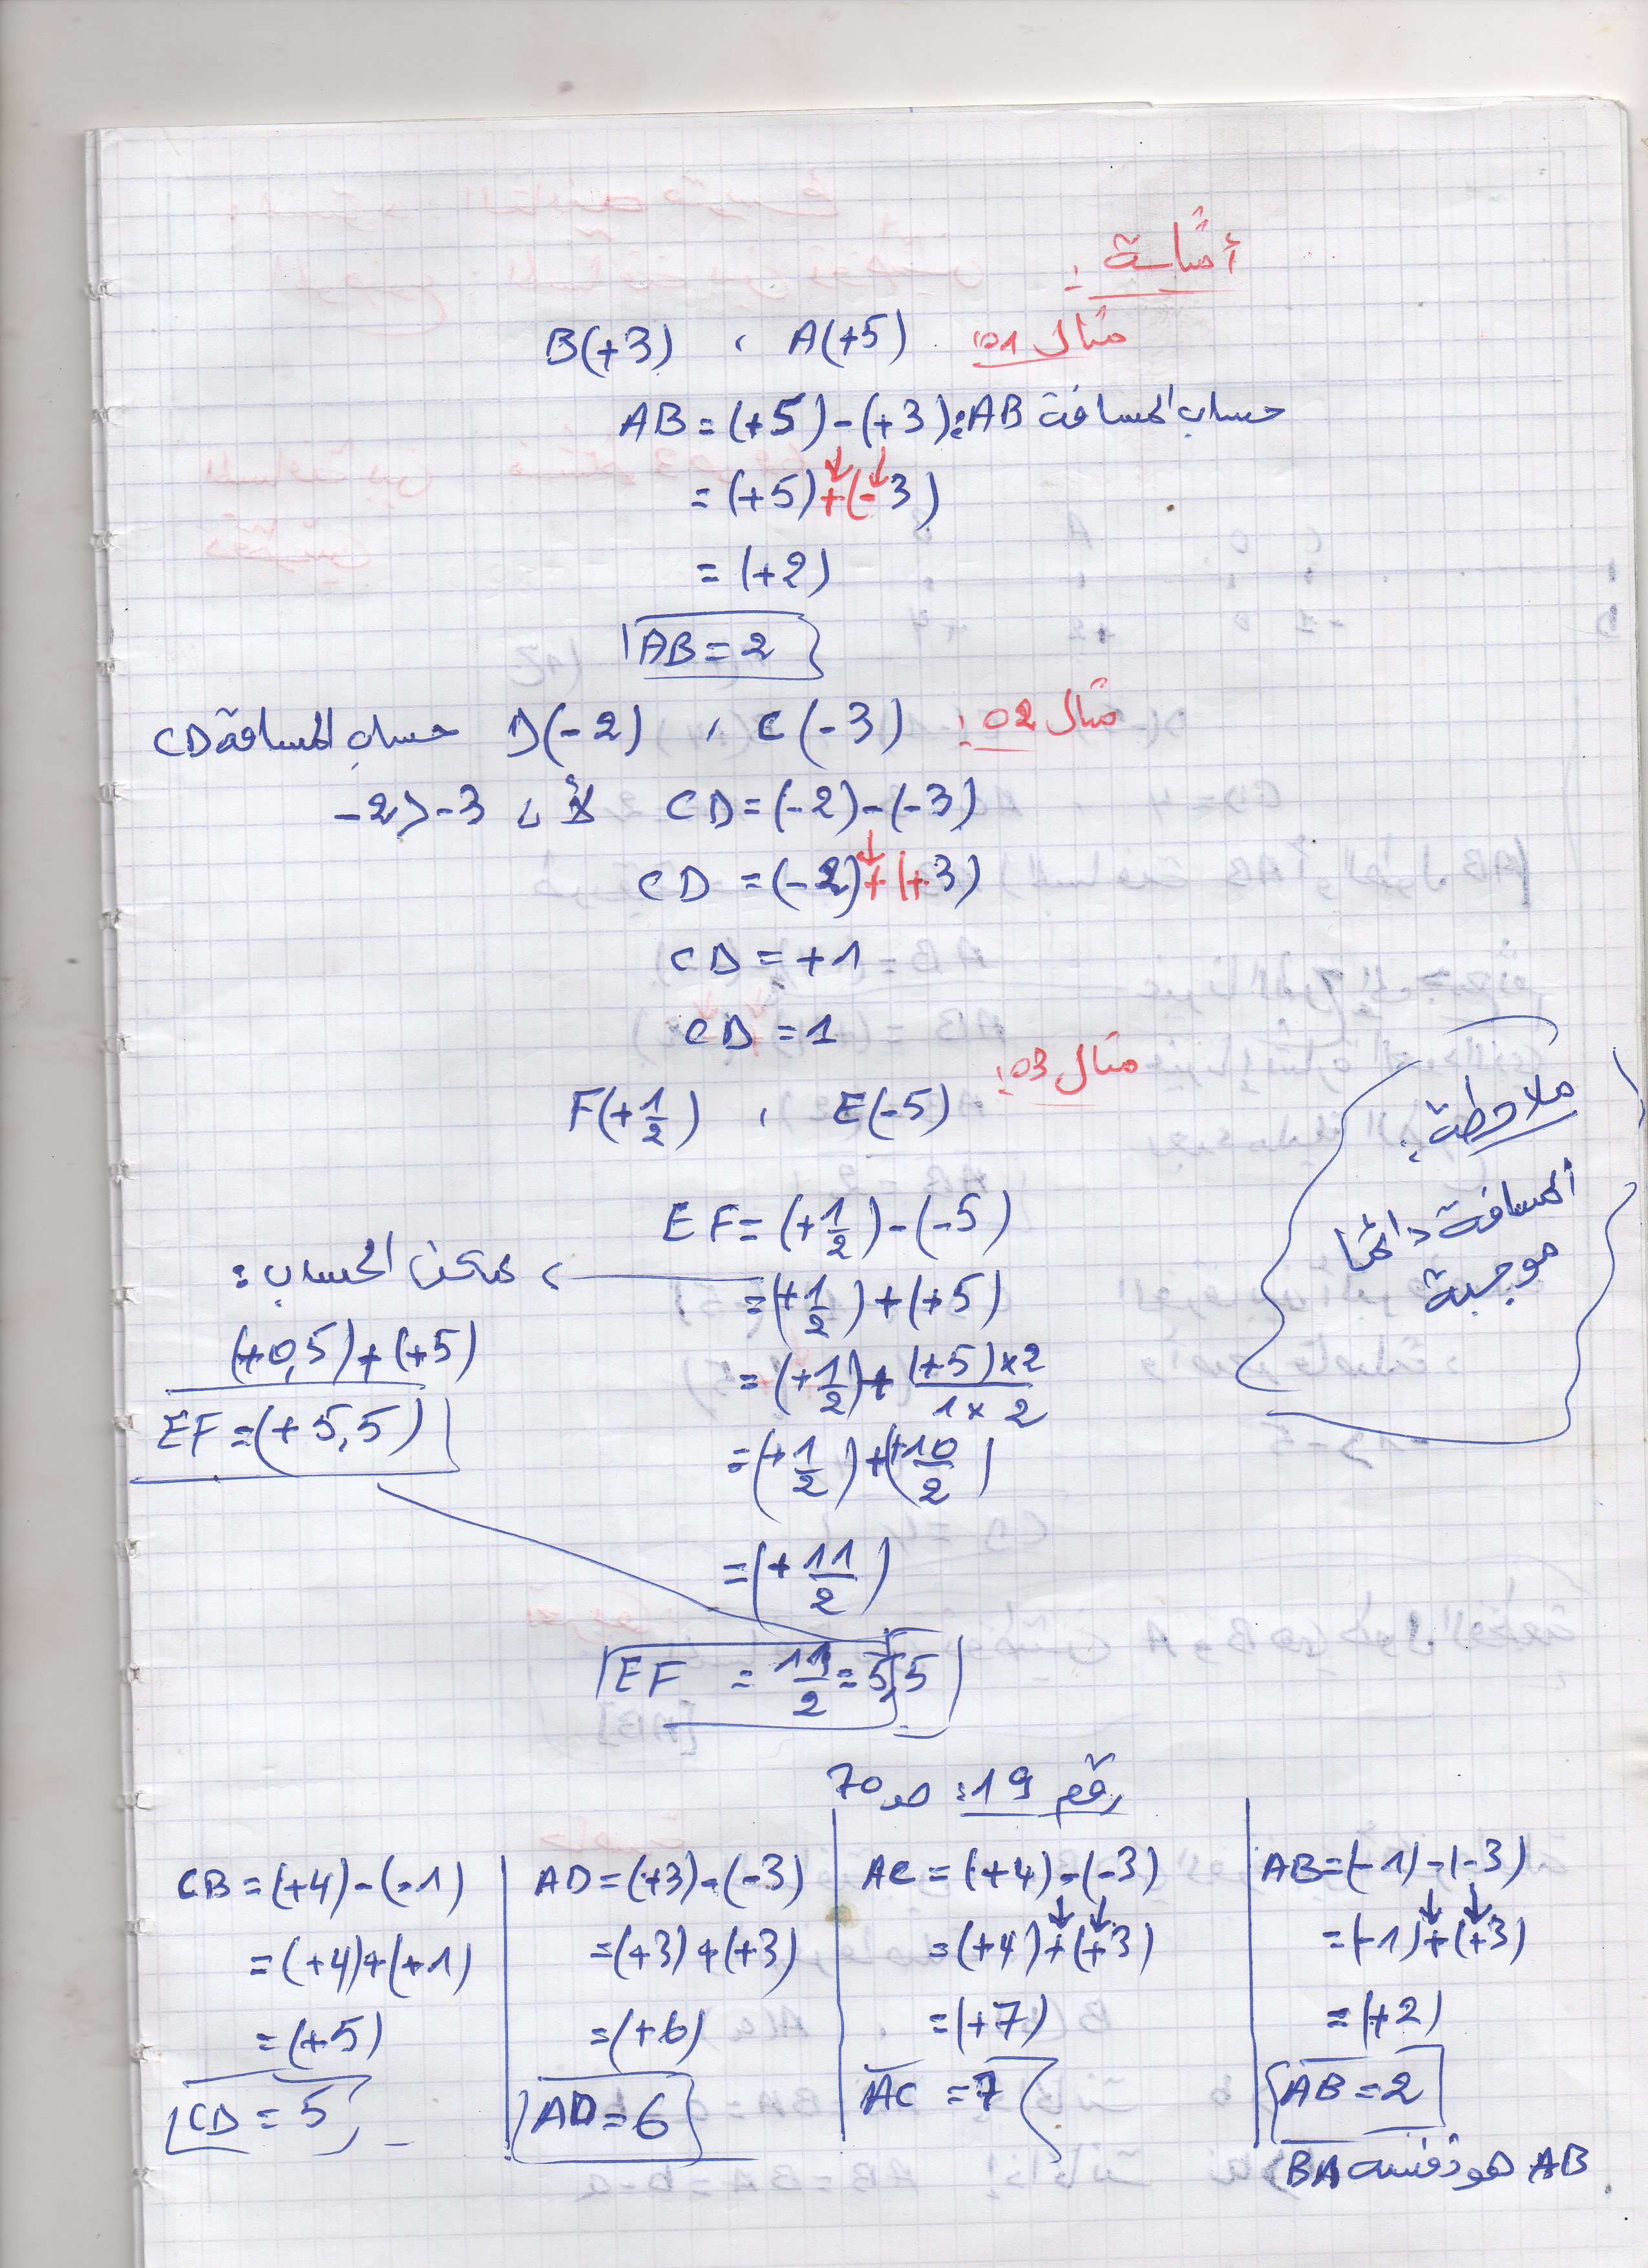 أمثلة :
مثال 01: A(+5) ، B(+3)
حساب المسافة AB: AB = (+5) - (+3)
= (+5) + (-3)
= (+2)
AB = 2
مثال 02: C(-3) ، D(-2) حساب المسافة CD
CD = (-2) - (-3) لأن -2 > -3
CD = (-2) + (+3)
CD = +1
CD = 1
مثال 03:
E(-5) ، F(+1/2)
ملاحظة:
المسافة دائما
موجبة
EF = (+1/2) - (-5)
= (+1/2) + (+5)
= (+1/2) + (+5)×2/1×2
= (+1/2) + (+10/2)
= (+11/2)
EF = 11/2 = 5,5
، يمكن الحساب :
(+0,5) + (+5)
EF = (+5,5)
رقم 19: ص 70
AB = (-1) - (-3)
= (-1) + (+3)
= (+2)
AB = 2
AB هو نفسه BA
AC = (+4) - (-3)
= (+4) + (+3)
= (+7)
AC = 7
AD = (+3) - (-3)
= (+3) + (+3)
= (+6)
AD = 6
CB = (+4) - (-1)
= (+4) + (+1)
= (+5)
CD = 5